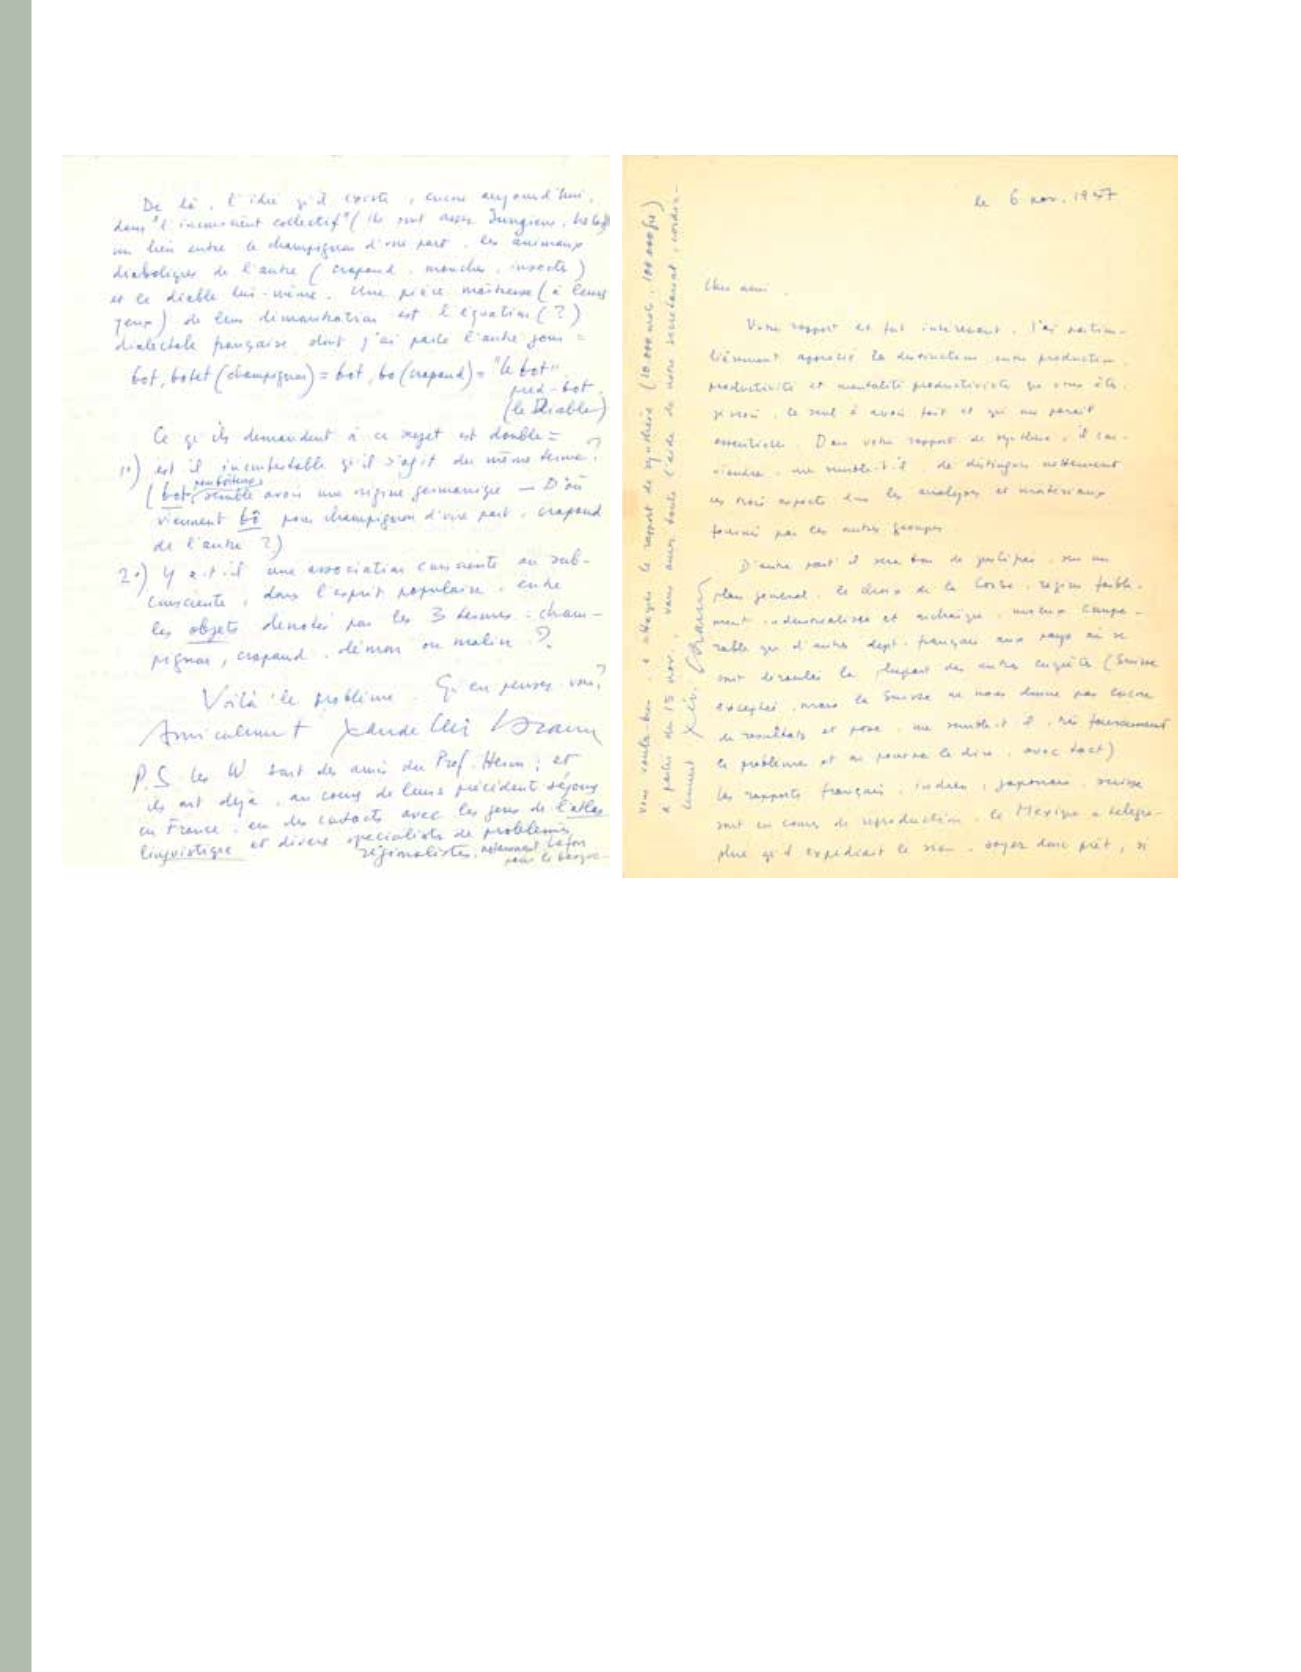 De là, l'idée qu'il existe, encore aujourd'hui,
dans "l'inconscient collectif" (ils sont assez Jungiens, hélas)
un lien entre le champignon d'une part, les animaux
diaboliques de l'autre (crapaud, mouches, insecte)
et le diable lui-même. Une pièce maîtresse (à leurs
yeux) de leur démonstration est l'équation (?)
dialectale française dont j'ai parlé l'autre jour =
bot, botet (champignon) = bot, bo (crapaud) = "le bot",
pied-bot
(le Diable)
Ce qu'ils demandent à ce sujet est double =
1°) est-il incontestable qu'il s'agit du même terme ?
(bot, semble avoir une origine germanique — D'où
viennent bô pour champignon d'une part, crapaud
de l'autre ?)
2°) Y a-t-il une association consciente ou sub-
consciente, dans l'esprit populaire, entre
les objets dénotés par les 3 termes : cham-
pignon, crapaud, démon ou malin ?
Voilà le problème. Qu'en pensez-vous ?
Amicalement Claude Lévi Strauss
P.S. Les W sont des amis du Prof. Heim ; et
ils ont déjà, au cours de leurs précédent séjours
en France, eu des contacts avec les gens de l'atlas
linguistique et divers spécialistes de problèmes
régionalistes, notamment Lafon
pour le basque.
le 6 nov. 1957
Cher ami,
Votre rapport est fort intéressant. J'ai particu-
lièrement apprécié la distinction entre production,
productivité et mentalité productiviste que vous êtes,
je crois, le seul à avoir fait et qui me paraît
essentielle. Dans votre rapport de synthèse, il con-
viendra, me semble-t-il, de distinguer nettement
ces trois aspects dans les analyses et matériaux
fournis par les autres groupes.
D'autre part il sera bon de justifier, sur un
plan général, le choix de la Corse, région faible-
ment industrialisée et archaïque, mieux compa-
rable que d'autres dept. français aux pays où se
sont déroulées la plupart des autres enquêtes (Suisse
exceptée, mais la Suisse ne nous donne pas encore
de résultats et pose, me semble-t-il, très faussement
le problème et on pourra le dire, avec tact)
Les rapports français, indien, japonais, suisse
sont en cours de reproduction. Le Mexique a télégra-
phié qu'il expédiait le sien. Soyez donc prêt, si
vous voulez bien, à attaquer le rapport de synthèse (10.000 mots, 100.000 frs)
à partir du 15 nov., vous aurez toute l'aide de notre secrétariat, cordia-
lement